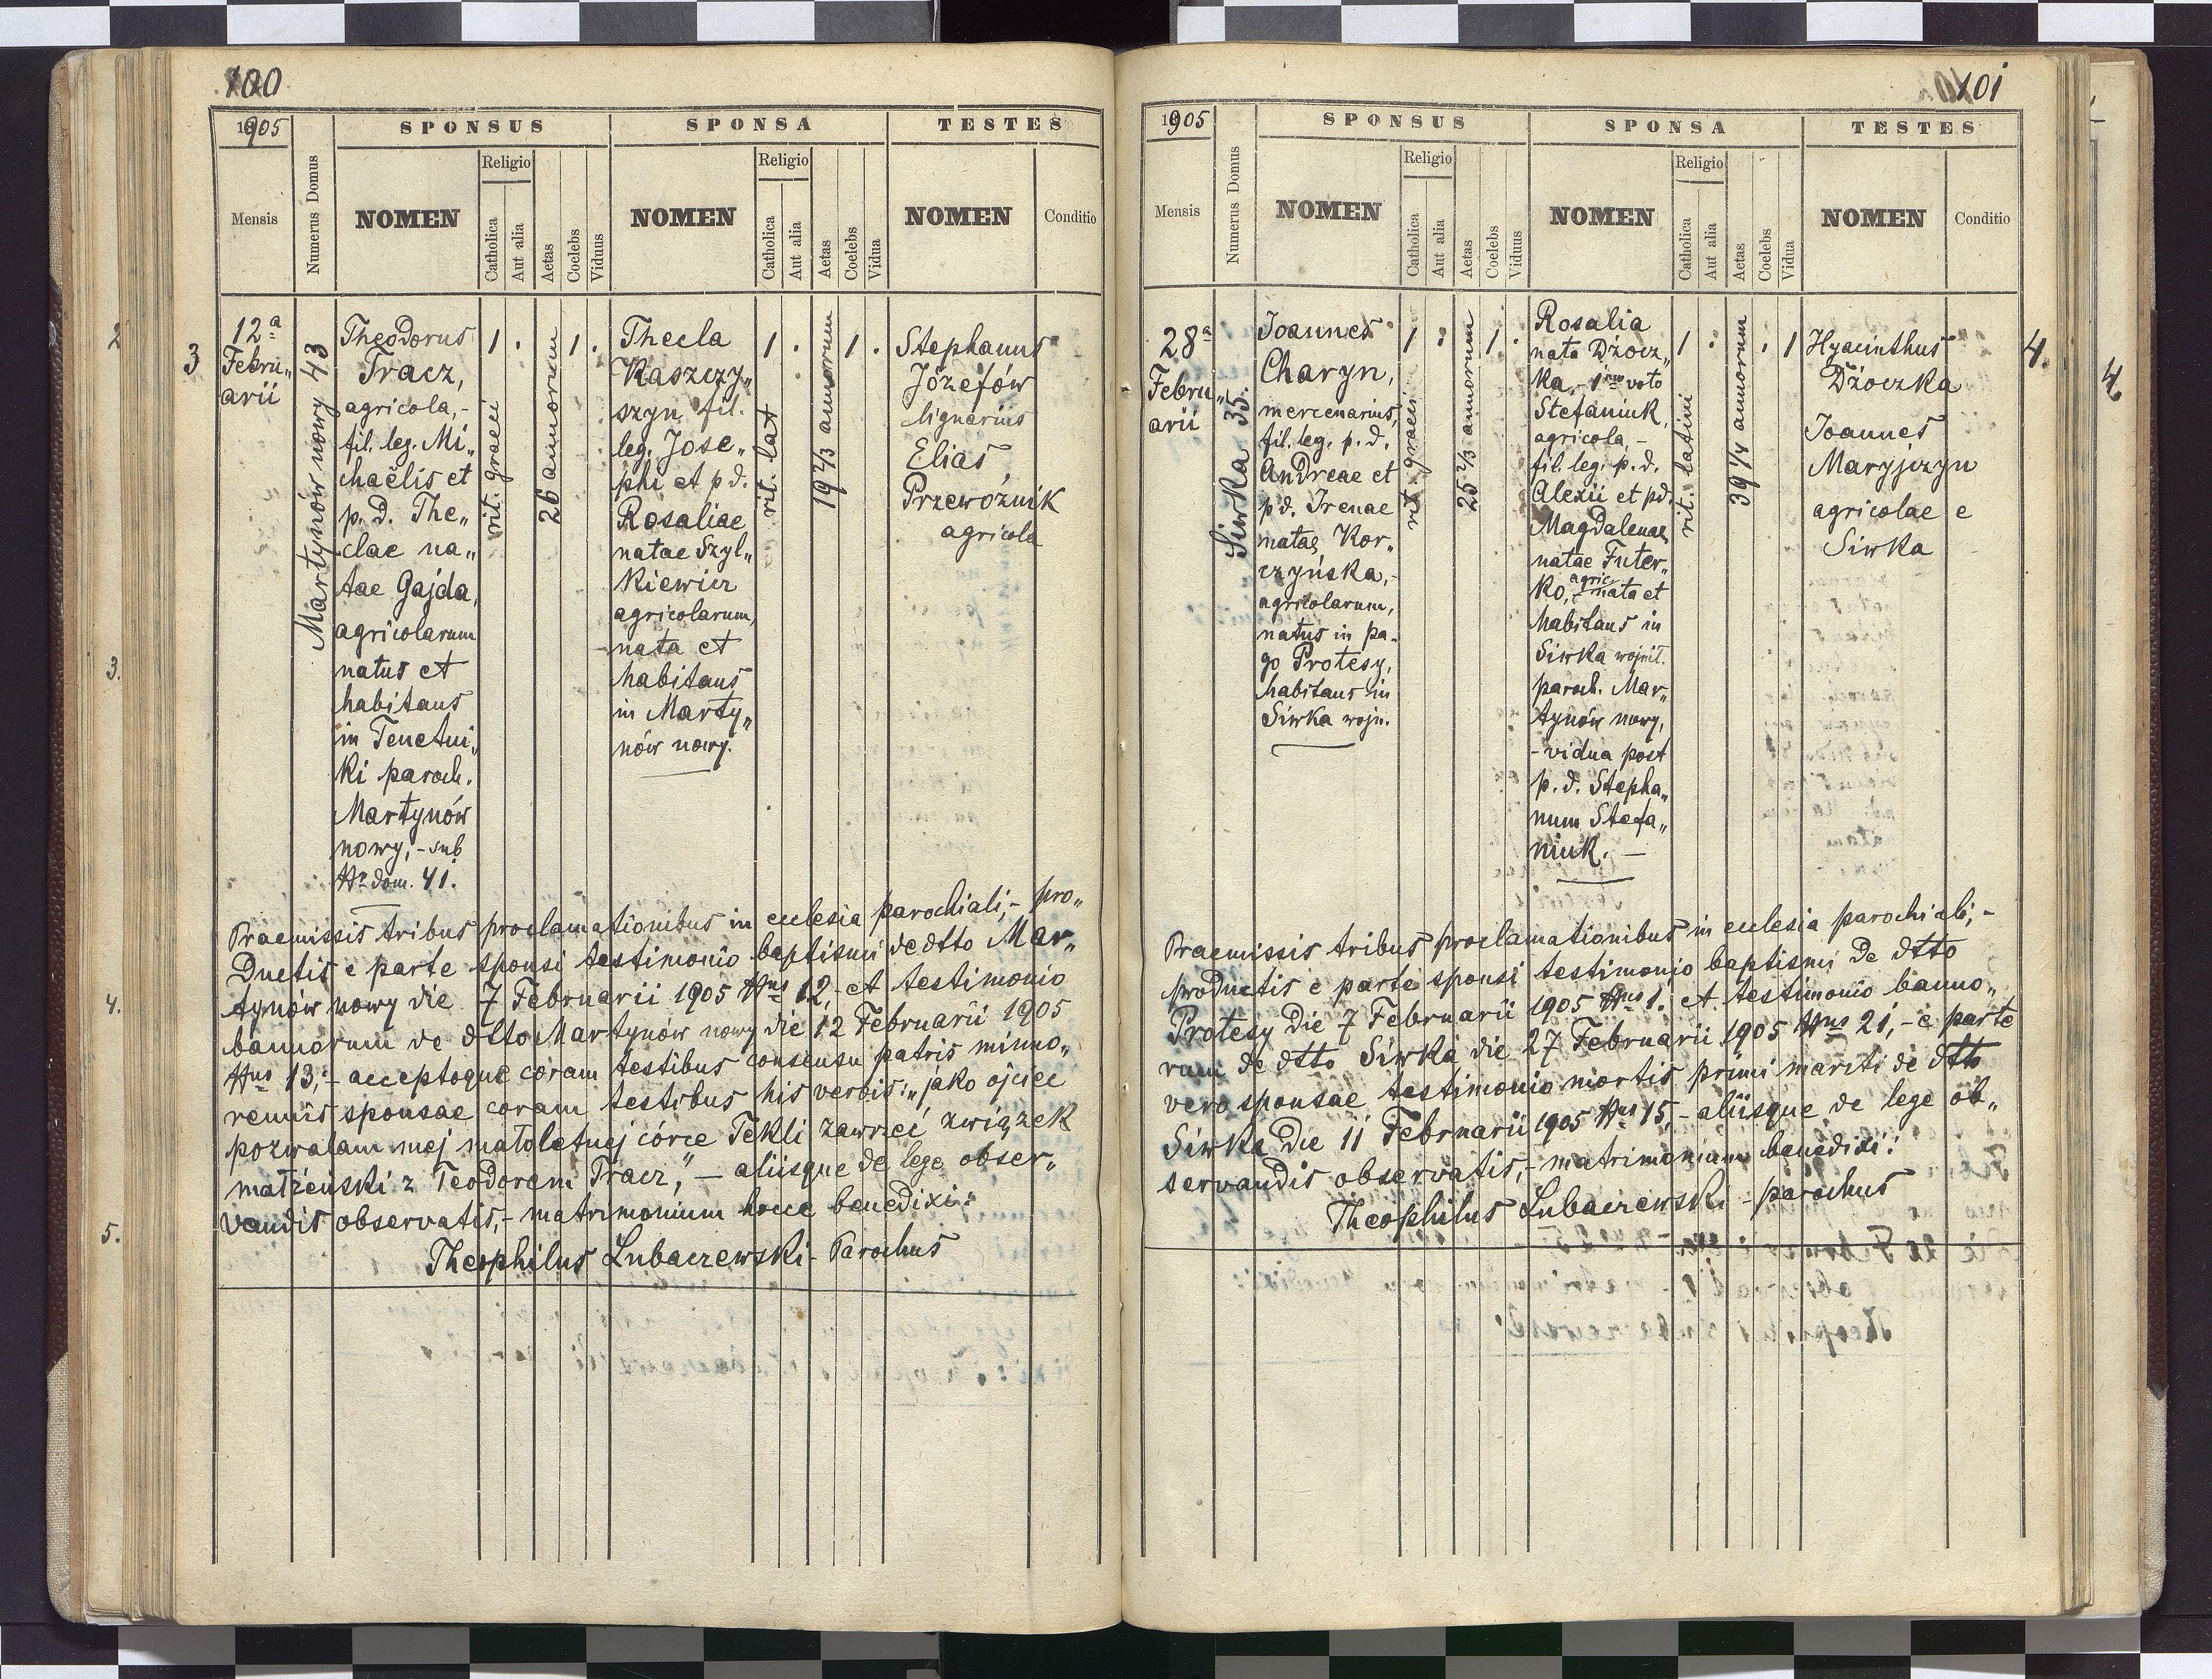 100
1905
SPONSUS
SPONSA
TESTES
Mensis
Numerus Domus
NOMEN
Religio
Catholica
Aut alia
Aetas
Coelebs
Viduus
NOMEN
Religio
Catholica
Aut alia
Aetas
Coelebs
Vidua
NOMEN
Conditio
2
3.
4.
5.
3
12ª
Febru„
arii
Martynów nowy 43
Theodorus
Tracz,
agricola,-
fil. leg. Mi„
chaëlis et
p. d. The„
clae na„
tae Gajda,
agricolarum
natus et
habitans
in Tenetni„
ki paroch.
Martynów
nowy, - sub
Nr dom. 41.
1 .
rit. graeci
26 annorum
1 .
Thecla
Kaszczy„
szyn fil.
leg. Jose„
phi et p d.
Rosaliae
natae Szyl„
kiewicz
agricolarum,
nata et
habitans
in Marty„
nów nowy.
1 .
rit. lat
19 2/3 annorum
1 .
Stephanus
Józefów
lignarius
Elias
Przewoźnik
agricola
Praemissis tribus proclamationibus in ecclesia parochiali, - pro„
ductis e parte sponsi testimonio baptismi de dtto Mar„
tynów nowy die 7 Februarii 1905 Nus 12, - et testimonio
bannorum de dtto Martynów nowy die 12 Februarii 1905
Nus 13, - acceptoque coram testibus consensu patris mino„
rennis sponsae coram testibus his verbis: „jako ojciec
pozwalam mej małoletniej córce Tekli zawrzeć związek
małżeński z Teodorem Tracz," — aliisque de lege obser„
vandis observatis, - matrimonium hocce benedixi:
Theophilus Lubaczewski - Parochus
101
1905
SPONSUS
SPONSA
TESTES
Mensis
Numerus Domus
NOMEN
Religio
Catholica
Aut alia
Aetas
Coelebs
Viduus
NOMEN
Religio
Catholica
Aut alia
Aetas
Coelebs
Vidua
NOMEN
Conditio
28ª
Febru„
arii
Siwka 35.
Joannes
Charyn,
mercenarius,
fil. leg. p. d.
Andreae et
p d. Irenae
natae Kor„
czyńska,-
agricolarum,
natus in pa-
go Protesy,
habitans in
Siwka wojn.
1 .
rit. graeci
25 2/3 annorum
1 .
Rosalia
nata Dżocz„
ka, - 1mo voto
Stefaniuk,
agricola, -
fil. leg. p. d.
Alexii et pd.
Magdalenae
natae Futer„
ko, agric. nata et
habitans in
Siwka wojnił.
paroch. Mar„
tynów nowy,
- vidua post
p. d. Stepha„
num Stefa„
niuk. —
1 .
rit. latini
39 1/4 annorum
. 1
Hyacinthus
Dżoczka
Joannes
Maryjczyn
agricolae e
Siwka
4.
4
Praemissis tribus proclamationibus in ecclesia parochiali, -
productis e parte sponsi testimonio baptismi de dtto
Protesy die 7 Februarii 1905 Nus 1. et testimonio banno„
rum de dtto Siwka die 27 Februarii 1905 Nus 21, - e parte
vero sponsae testimonio mortis primi mariti de dtto
Siwka die 11 Februarii 1905 Nus 15, - aliisque de lege ob„
servandis observatis, - matrimonium benedixi:
Theophilus Lubaczewski - parochus